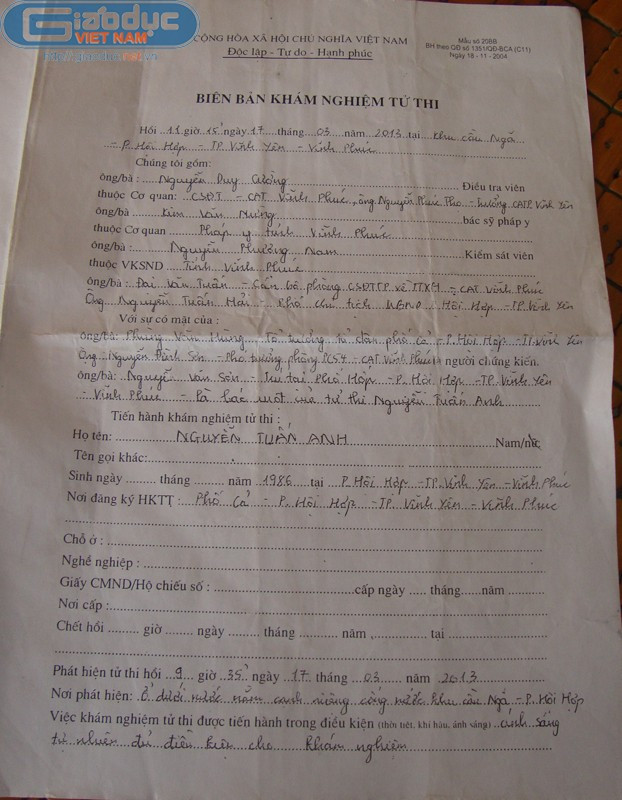 GiáoDục
VIỆT NAM
CỘNG HÒA XÃ HỘI CHỦ NGHĨA VIỆT NAM
Độc lập - Tự do - Hạnh phúc
Mẫu số 20BB
BH theo QĐ số 1351/QĐ-BCA (C11)
Ngày 18 - 11 - 2004
BIÊN BẢN KHÁM NGHIỆM TỬ THI
Hồi ..11.. giờ .15.. ngày .17... tháng ..03.. năm ..2013.. tại ..Khu cầu Ngã..
- P. Hội Hợp - TP Vĩnh Yên - Vĩnh Phúc
Chúng tôi gồm:
ông/bà : Nguyễn Duy Cường Điều tra viên
thuộc Cơ quan: CSĐT - CAT Vĩnh Phúc, ông Nguyễn Phúc Thọ - trưởng CATP Vĩnh Yên
ông/bà Kim Văn bác sỹ pháp y
thuộc Cơ quan Pháp y tỉnh Vĩnh Phúc
ông/bà : Nguyễn Phương Nam Kiểm sát viên
thuộc VKSND Tỉnh Vĩnh Phúc
ông/bà : Đại Văn Tuấn - Cán bộ phòng CSĐTTP về TTXH - CAT Vĩnh Phúc
Ông Nguyễn Tuấn Hải - Phó chủ tịch UBND Hội Hợp - TP Vĩnh Yên
Với sự có mặt của :
ông/bà: Phùng Văn Hùng - Tổ trưởng tổ dân phố cả - P. Hội Hợp - TP. Vĩnh Yên
Ông : Nguyễn Đình Sơn - Phó trưởng phòng PC54 - CAT Vĩnh Phúc là người chứng kiến.
ông/bà: Nguyễn Văn Sơn - P. Hội Hợp - TP. Vĩnh Yên
- Vĩnh Phúc - Là bác ruột của tử thi Nguyễn Tuấn Anh
Tiến hành khám nghiệm tử thi :
Họ tên: NGUYỄN TUẤN ANH Nam/nữ
Tên gọi khác:
Sinh ngày ........ tháng ......... năm .1986.. tại ..P. Hội Hợp - TP. Vĩnh Yên - Vĩnh Phúc
Nơi đăng ký HKTT : Phố Cả - P. Hội Hợp - TP Vĩnh Yên - Vĩnh Phúc
Chỗ ở :
Nghề nghiệp :
Giấy CMND/Hộ chiếu số : cấp ngày ..... tháng.....năm
Nơi cấp:
Chết hồi ........ giờ ........ ngày ......... tháng .......... năm ,.......... tại
Phát hiện tử thi hồi ..9.. giờ .35.. ngày ..17.. tháng ...03... năm ...2013
Nơi phát hiện: Ở dưới nước nằm cạnh miệng cống nước khu cầu Ngã - P. Hội Hợp
Việc khám nghiệm tử thi được tiến hành trong điều kiện (thời tiết, khí hậu, ánh sáng) ..ánh sáng
tự nhiên đủ điều kiện cho khám nghiệm